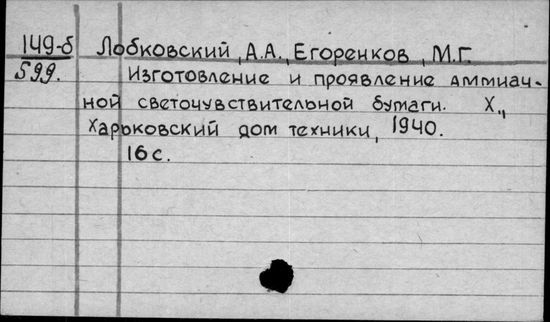 149-б Лобковский, А.А., Егоренков, М.Г.
599. Изготовление и проявление аммиач-
ной светочувствительной бумаги. Х.,
Харьковский дом техники, 1940.
16 с.